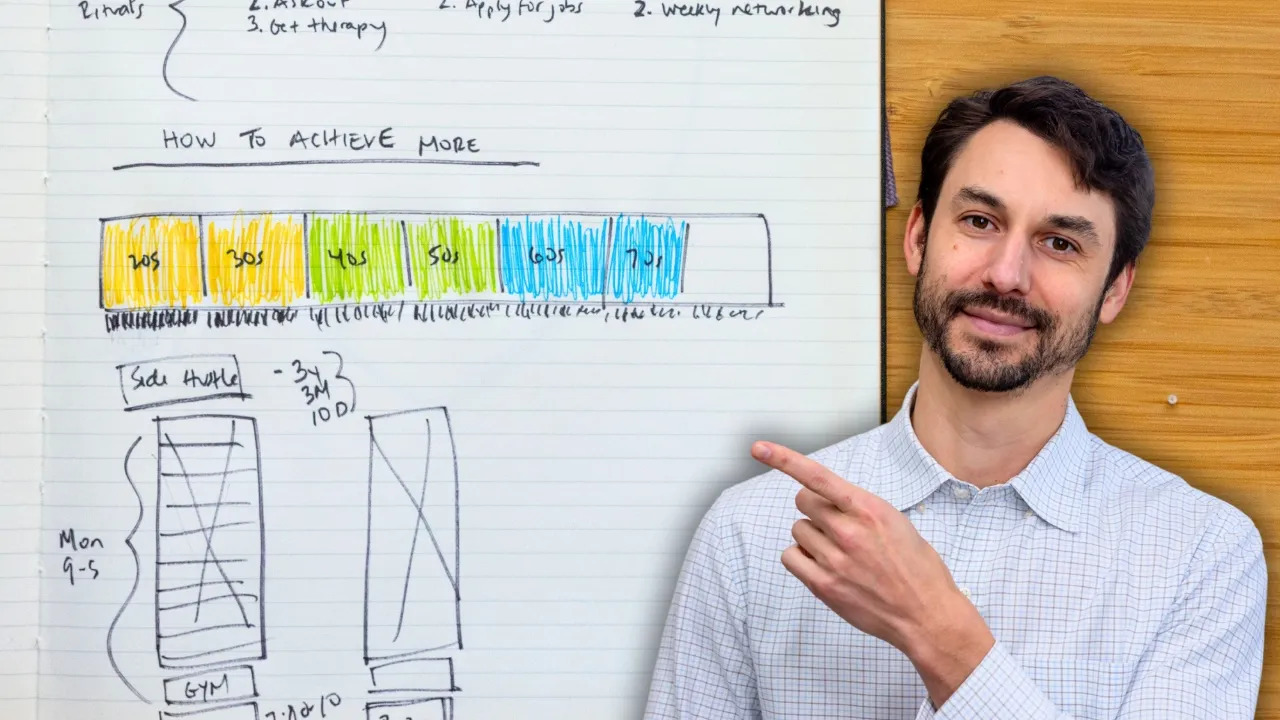 Rituals
2. Ask out
2. Apply for jobs
2. Weekly networking
3. Get therapy
HOW TO ACHIEVE MORE
20s 30s 40s 50s 60s 70s
Side Hustle
- 3Y
3M
10D
Mon
9-5
GYM